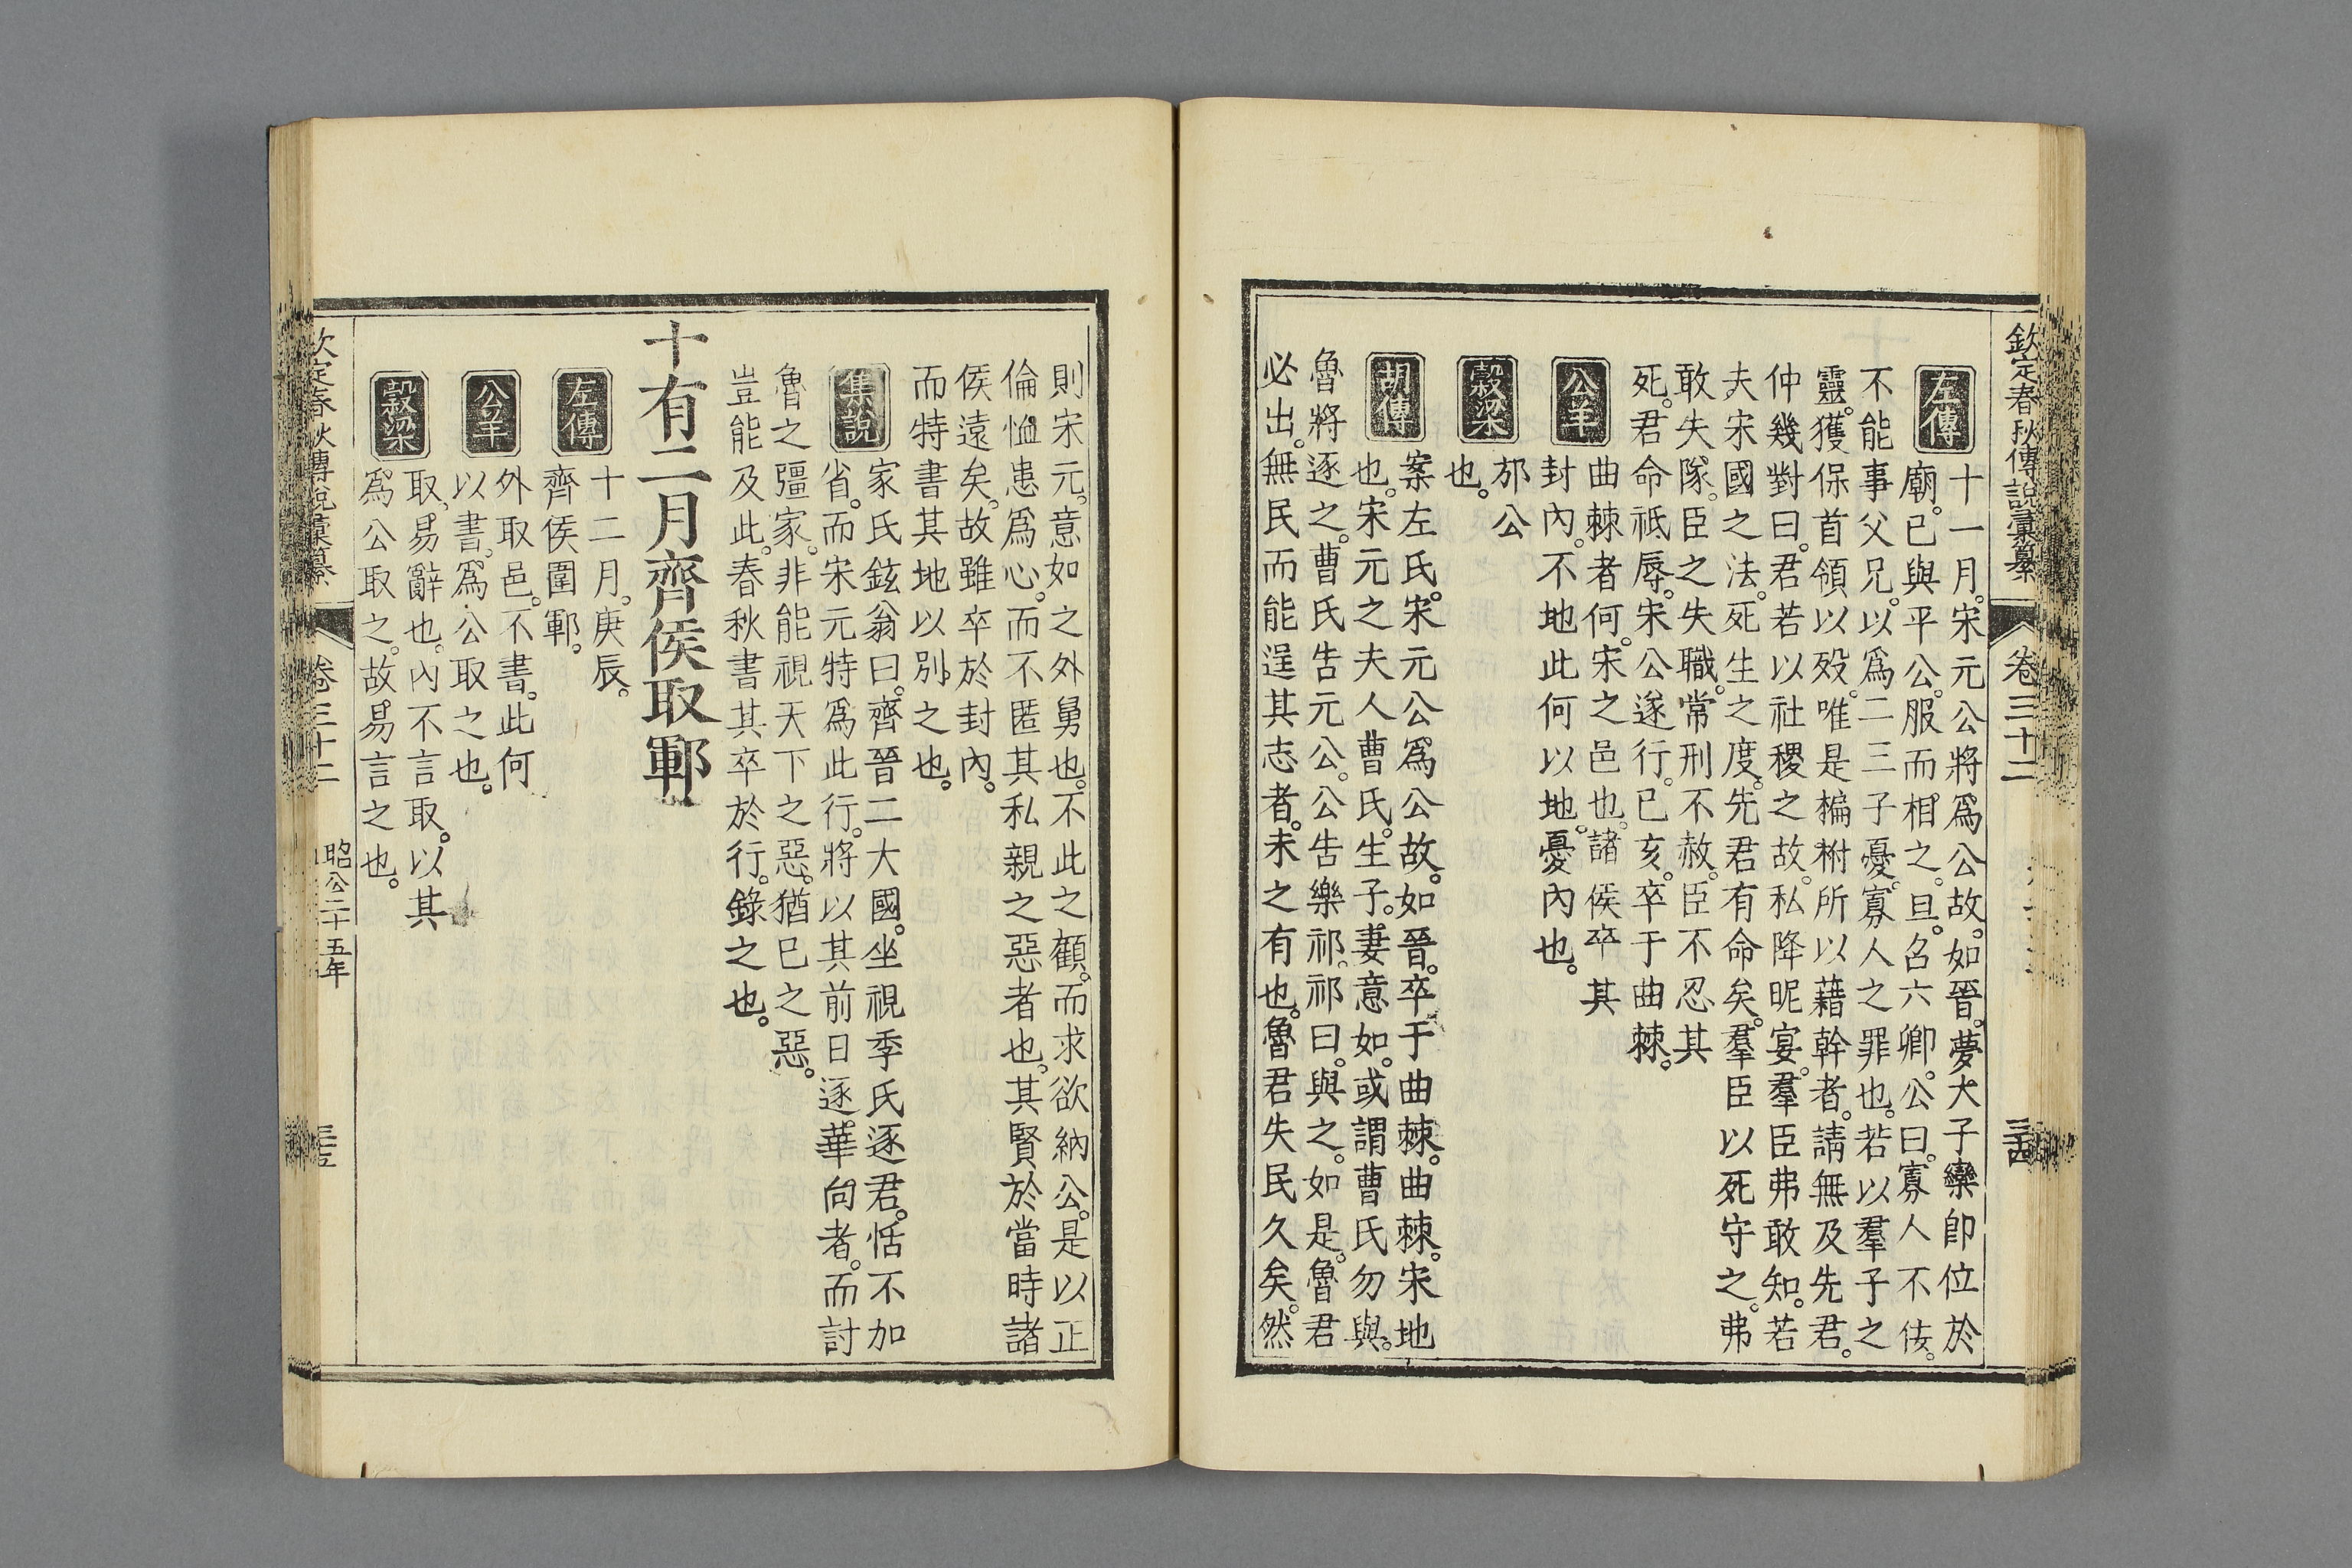 欽定春秋傳說彙纂 卷三十二 三十四
左傳 十一月。宋元公將爲公故。如晉。夢大子欒卽位於
廟。已與平公。服而相之。旦。召六卿。公曰。寡人不佞。
不能事父兄。以爲二三子憂。寡人之罪也。若以羣子之
靈。獲保首領以歿。唯是楄柎所以藉幹者。請無及先君。
仲幾對曰。君若以社稷之故。私降昵宴。羣臣弗敢知。若
夫宋國之法。死生之度。先君有命矣。羣臣以死守之。弗
敢失隊。臣之失職。常刑不赦。臣不忍其
死。君命祇辱。宋公遂行。已亥。卒于曲棘。
公羊 曲棘者何。宋之邑也。諸侯卒其
封內。不地此何以地。憂內也。
穀梁 邡公
也。
胡傳 案左氏。宋元公爲公故。如晉。卒于曲棘。曲棘。宋地
也。宋元之夫人曹氏。生子。妻意如。或謂曹氏勿與。
魯將逐之。曹氏告元公。公告樂祁。祁曰。與之。如是。魯君
必出。無民而能逞其志者。未之有也。魯君失民久矣。然
則宋元。意如之外舅也。不此之顧。而求欲納公。是以正
倫恤患爲心。而不匿其私親之惡者也。其賢於當時諸
侯遠矣。故雖卒於封內。
而特書其地以別之也。
集說 家氏鉉翁曰。齊晉二大國。坐視季氏逐君。恬不加
省。而宋元特爲此行。將以其前日逐華向者。而討
魯之彊家。非能視天下之惡。猶已之惡。
豈能及此。春秋書其卒於行。錄之也。
十有二月齊侯取鄆
左傳 十二月。庚辰。
齊侯圍鄆。
公羊 外取邑。不書。此何
以書。爲公取之也。
穀梁 取。易辭也。內不言取。以其
爲公取之。故易言之也。
欽定春秋傳說彙纂 卷三十二 昭公二十五年 三十五